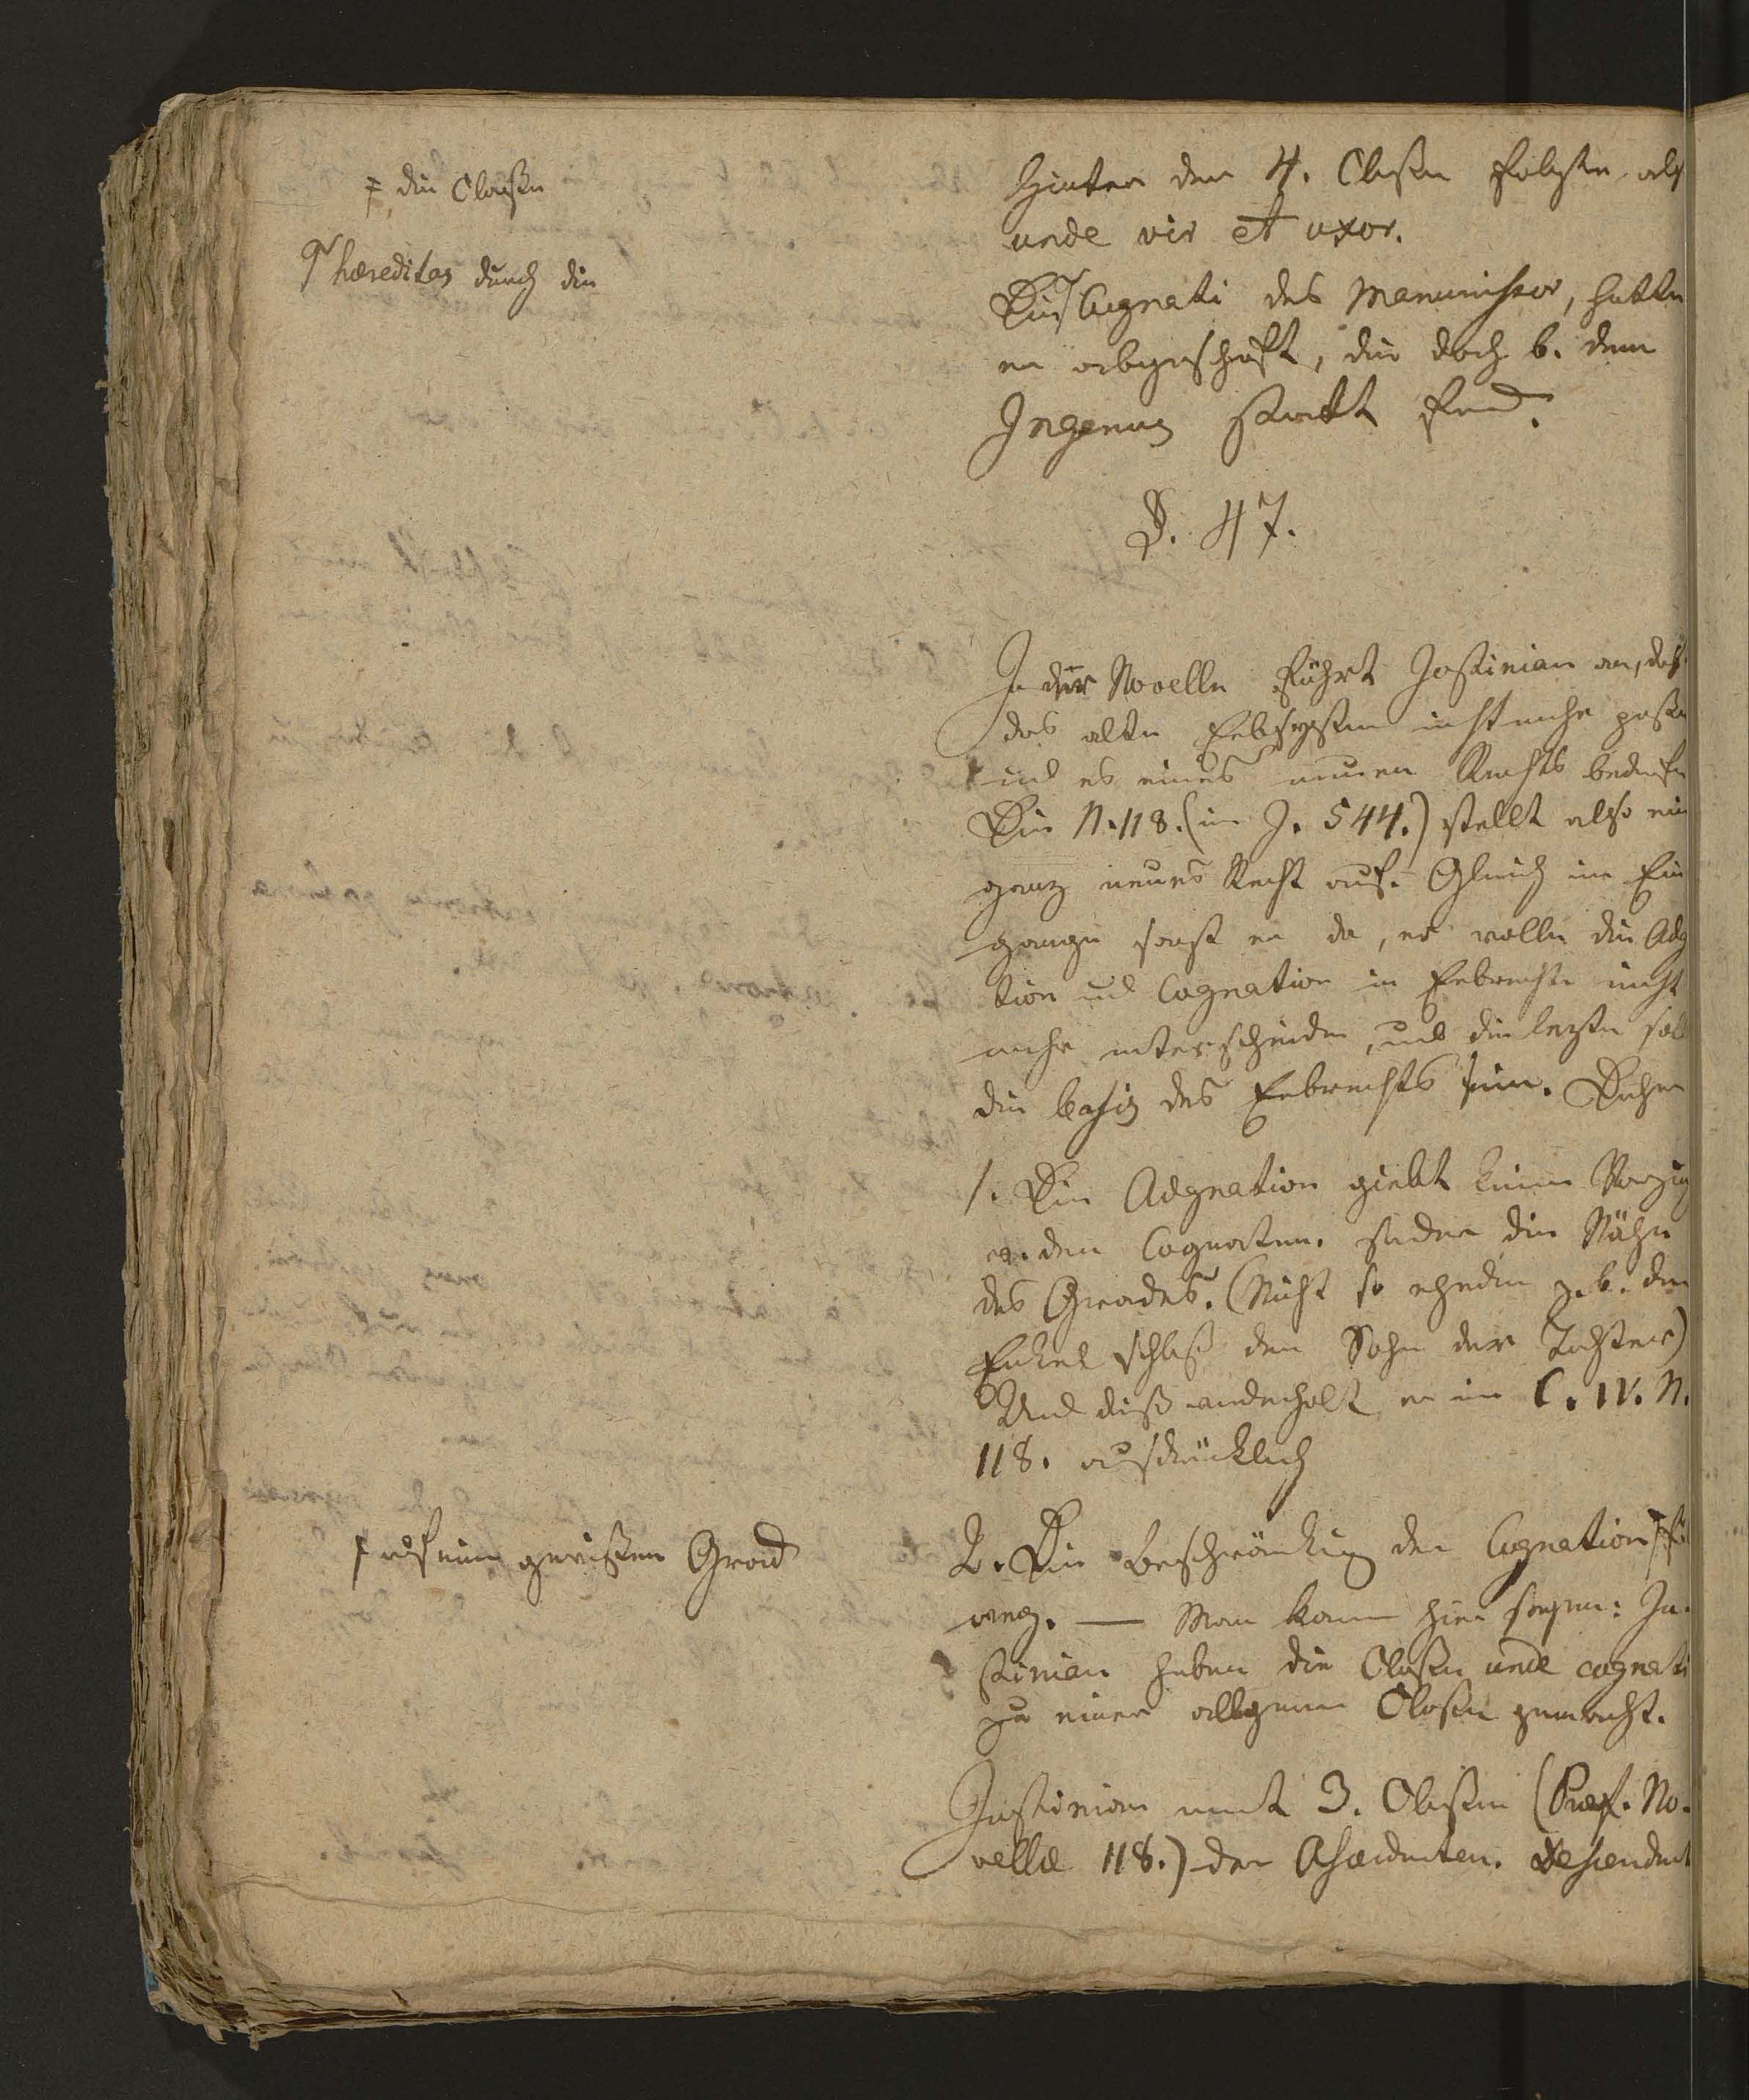 ‡ die Classe
⌈ hæreditas durch die
Hinter der 4. Classe folgte als
unde vir et uxor.
Die ⌈ Cognati des Manumissor, hatte
er abgeschafft, die doch b. dem
Ingenuus statt fand.
§. 47.
In der Novelle führt Justinian an, daß
das alte Erbsystem nicht mehr passe
und es eines neuen Rechts bedürfe
Die N. 118. (im J. 544.) stellt also ein
ganz neues Recht auf. Gleich im Ein
gange sagt er da, er wolle die Adg
tion und Cognation in Erbrechte nicht
mehr unterscheiden, und die lezte soll
die basis des Erbrechts sein. Daher
1. Die Adgnation giebt keinen Vorzug
v. den Cognaten. sondern die Nähe
des Grades. (Nicht so ehedin z. b. der
Enkel schloß den Sohn der Tochter)
Und diß wiederholt er im C. IV. N.
118. ausdrücklich
‡ auf einen gewissen Grad
2. Die Beschränkung der Cognation ‡ fi
weg. — Man kann hier sagen: Ju-
stinian habe die Classe unde cognati
zu einer allgemeinen Classe gemacht.
Justinian macht 3. Classen (Praef. No-
vellæ 118.) der Ascendenten. Descendent